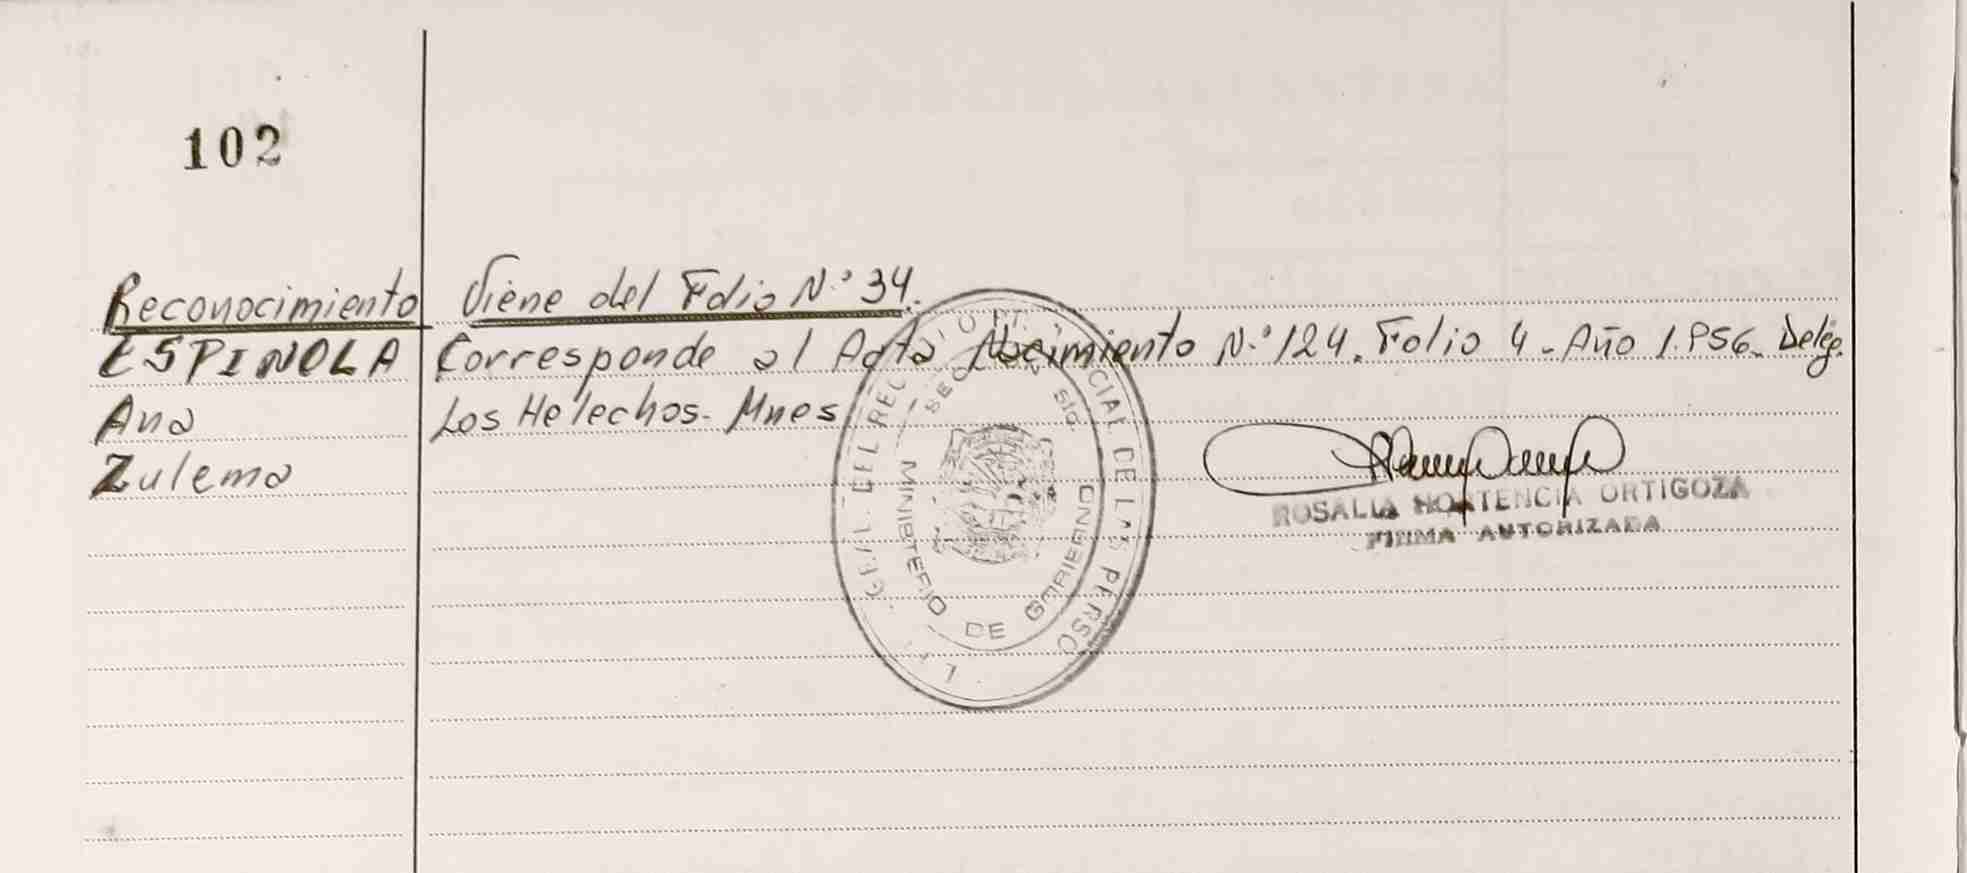 102
Reconocimiento Viene del Folio N.º 34.
ESPINOLA Corresponde al Acta Nacimiento N.º 124. Folio 4 - Año 1.956. Deleg.
Ana Los Helechos - Mnes
Zulema
ROSALIA HORTENCIA ORTIGOZA
FIRMA AUTORIZADA
DEL REG
CIAL DE LAS PERSO
MINISTERIO DE GOBIERNO